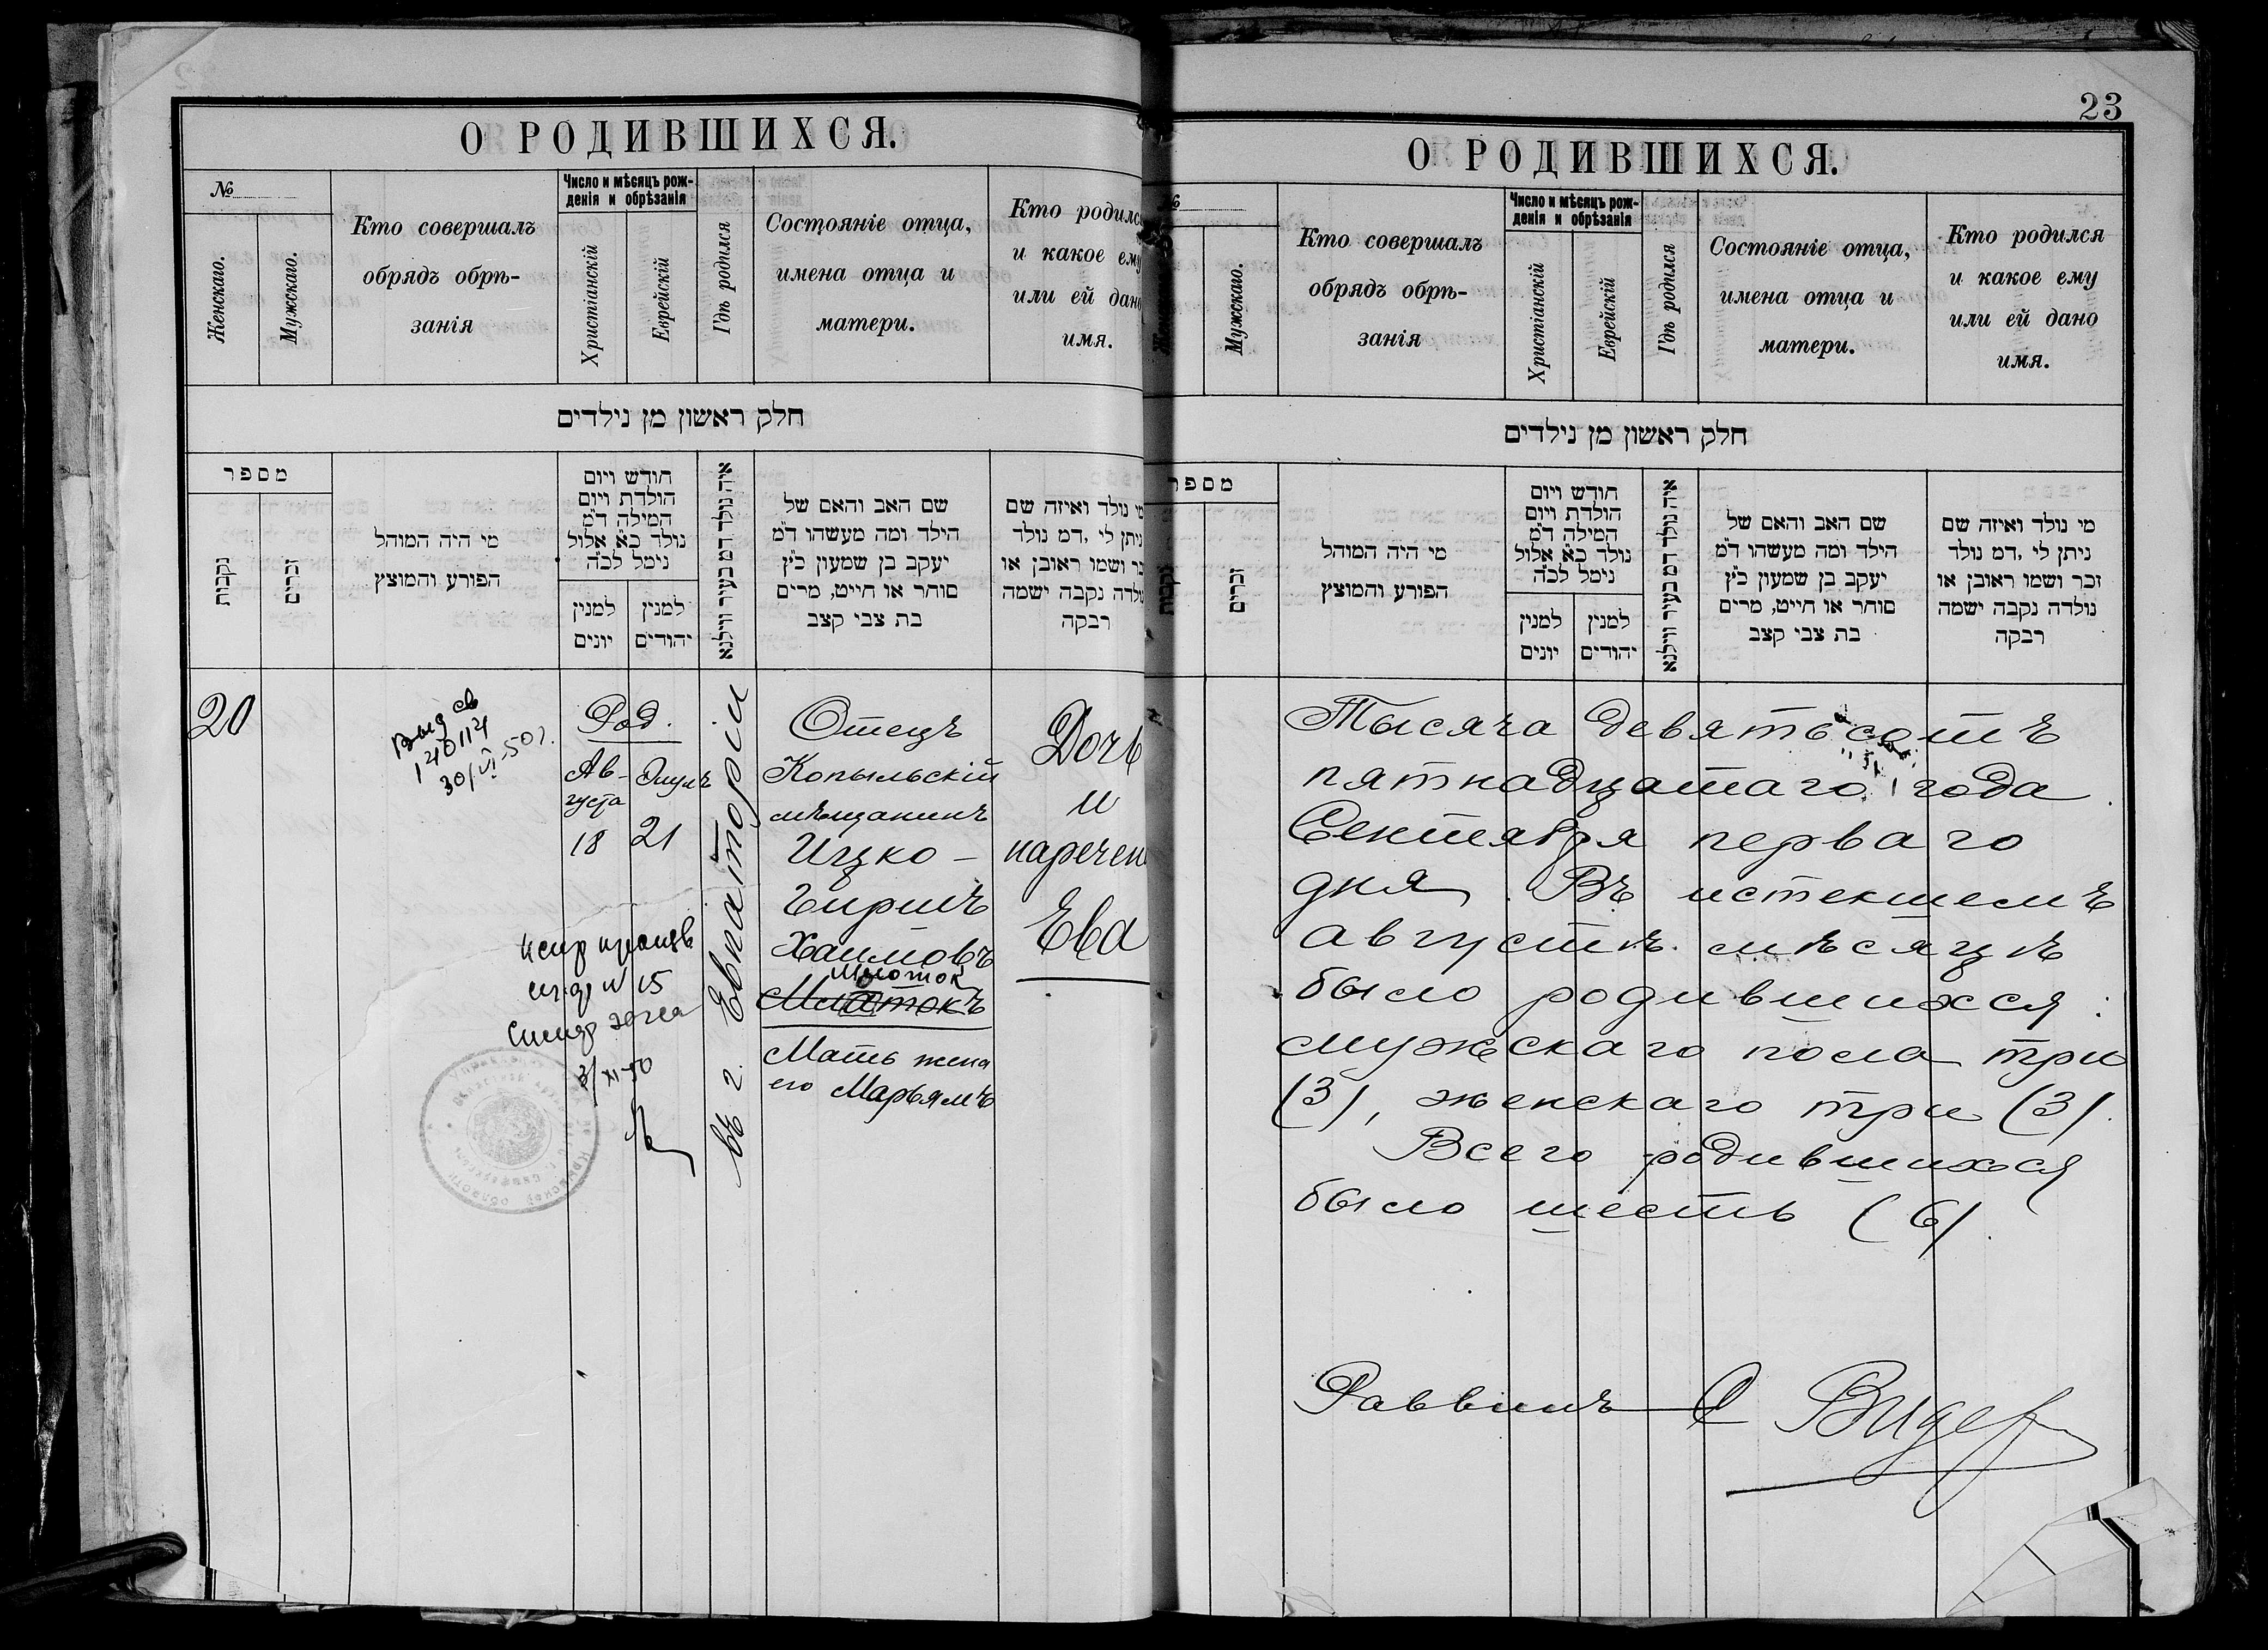 О РОДИВШИХСЯ.
№
Женскаго.
Мужскаго.
Кто совершалъ
обрядъ обрѣ-
занія
Число и мѣсяцъ рож-
денія и обрѣзанія
Христіанскій
Еврейскій
Гдѣ родился
Состояніе отца,
имена отца и
матери.
Кто родилс
и какое ему
или ей дано
имя.
חלק ראשון מן נילדים
מספר
נקבות
זכרים
מי היה המוהל
הפורע והמוצץ
חודש ויום
הולדת ויום
המילה ד״מ
נולד כ״א אלול
נימל לכ״ה
למנין
יונים
למנין
יהודים
איה נולד דמ בעיר ווילנא
שם האב והאם של
הילד ומה מעשהו ד״מ
יעקב בן שמעון כ״ץ
סוחר או חייט, מרים
בת צבי קצב
מי נולד ואיזה שם
ניתן לי ,דמ נולד
זכר ושמו ראובן או
נולדה נקבה ישמה
רבקה
20
Выд св
140114
30/VI-50 г.
Род.
Ав-
густа
18
Элулъ
21
въ г. Евпаторіи
Отецъ
Копыльскій
мѣщанинъ
Ицко-
Гиршъ
Хаимовъ
Млотокъ
Мать жена
его Марьямъ
Дочь
и
наречен
Ева
15
3/XI-50
23
О РОДИВШИХСЯ.
№
Мужскаго.
Кто совершалъ
обрядъ обрѣ-
занія
Число и мѣсяцъ рож-
денія и обрѣзанія
Христіанскій
Еврейскій
Гдѣ родился
Состояніе отца,
имена отца и
матери.
Кто родился
и какое ему
или ей дано
имя.
חלק ראשון מן נילדים
מספר
נקבות
זכרים
מי היה המוהל
הפורע והמוצץ
חודש ויום
הולדת ויום
המילה ד״מ
נולד כ״א אלול
נימל לכ״ה
למנין
יונים
למנין
יהודים
איה נולד דמ בעיר ווילנא
שם האב והאם של
הילד ומה מעשהו ד״מ
יעקב בן שמעון כ״ץ
סוחר או חייט, מרים
בת צבי קצב
מי נולד ואיזה שם
ניתן לי ,דמ נולד
זכר ושמו ראובן או
נולדה נקבה ישמה
רבקה
Тысяча девятьсотъ
пятнадцатаго года
Сентября перваго
дня. Въ истекшемъ
августѣ мѣсяцѣ
было родившихся:
мужскаго пола три
(3), женскаго три (3).
Всего родившихся
было шесть (6).
Раввинъ Видер